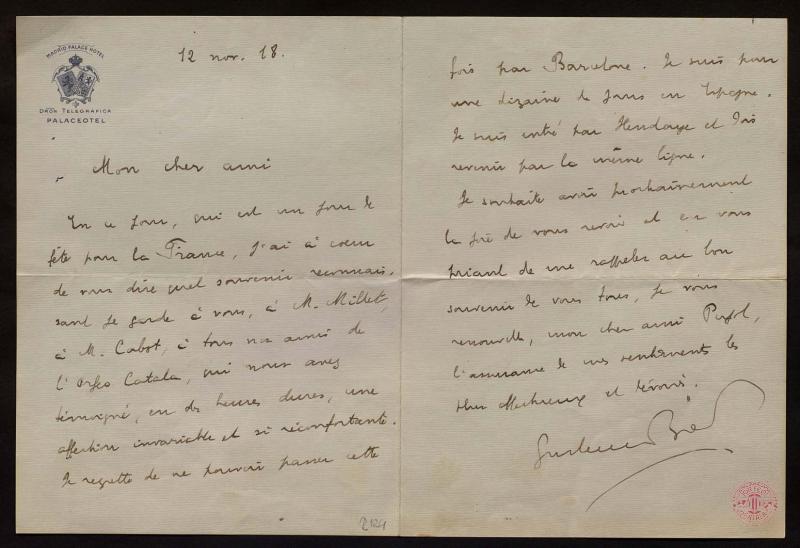 MADRID PALACE HOTEL
DRÓN TELEGRÁFICA
PALACEOTEL
12 nov. 18.
Mon cher ami
En ce jour, qui est un jour de
fête pour la France, j'ai à cœur
de vous dire quel souvenir reconnais-
sant je garde à vous, à M. Millet,
à M. Cabot, à tous nos amis de
l'Orfeo Catala, qui nous avez
témoigné, en des heures dures, une
affection invariable et si réconfortante.
Je regrette de ne pouvoir passer cette
fois par Barcelone. Je suis pour
une dizaine de jours en Espagne.
Je suis entré par Hendaye et dois
revenir par la même ligne.
Je souhaite avoir prochainement
la joie de vous revoir et en vous
priant de me rappeler au bon
souvenir de vous tous, je vous
renouvelle, mon cher ami Pujol,
l'assurance de mes sentiments les
plus affectueux et dévoués.
2124
ORFEÓ CATALÀ